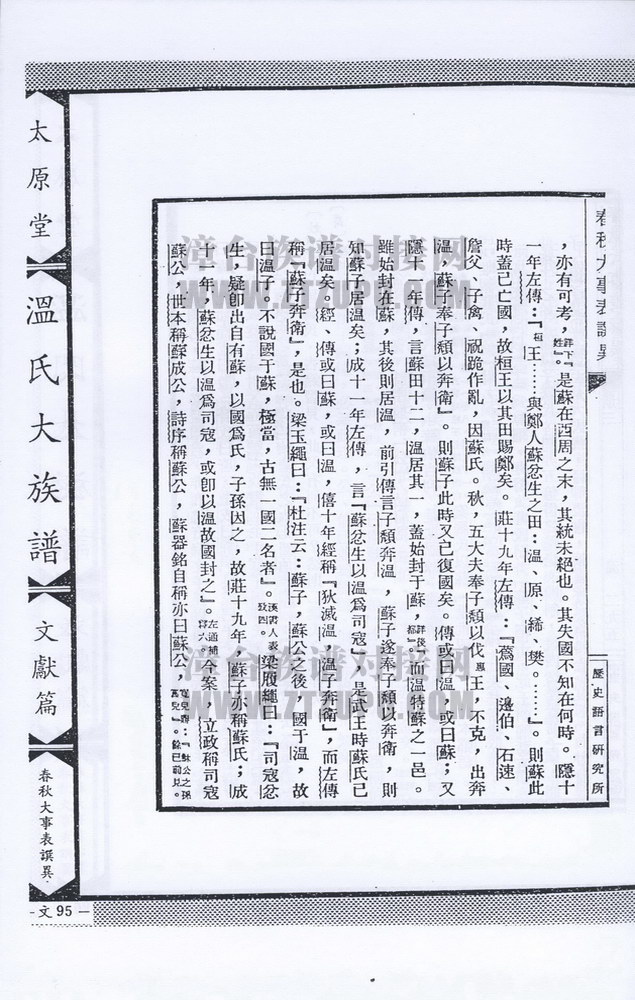 春秋大事表譔異
歷史語言研究所
，亦有可考，詳下『姓』。是蘇在西周之末，其統未絕也。其失國不知在何時。隱十
一年左傳：『桓王……與鄭人蘇忿生之田：溫、原、絺、樊。……』。則蘇此
時蓋已亡國，故桓王以其田賜鄭矣。莊十九年左傳：『蔿國、邊伯、石速、
詹父、子禽、祝跪作亂，因蘇氏。秋，五大夫奉子頹以伐惠王，不克，出奔
溫，蘇子奉子頹以奔衛』。則蘇子此時又已復國矣。傳或曰溫，或曰蘇；又
隱十一年傳，言蘇田十二，溫居其一，蓋始封于蘇，詳後『都』。而溫特蘇之一邑。
雖始封在蘇，其後則居溫，前引傳言子頹奔溫，蘇子遂奉子頹以奔衛，則
知蘇子居溫矣；成十一年左傳，言『蘇忿生以溫爲司寇』，是武王時蘇氏已
居溫矣。經、傳或曰蘇，或曰溫，僖十年經稱『狄滅溫，溫子奔衛』，而左傳
稱『蘇子奔衛』，是也。梁玉繩曰：『杜注云：蘇子，蘇公之後，國于溫，故
曰溫子。不說國于蘇，極當，古無一國二名者』。漢書人表攷四。梁履繩曰：『司寇忿
生，疑卽出自有蘇，以國爲氏，子孫因之，故莊十九年，蘇子亦稱蘇氏；成
十一年，蘇忿生以溫爲司寇，或卽以溫故國封之』。左通補釋六。今案，立政稱司寇
蘇公，世本稱蘇成公，詩序稱蘇公，蘇器銘自稱亦曰蘇公，寬兒鼎：『蘇公之孫寬兒』。餘已前見。
太原堂
溫氏大族譜
文獻篇
春秋大事表譔異
-文 95 -
漳台族谱对接网
WWW.ZTZUPU.COM
漳台族谱对接网
WWW.ZTZUPU.COM